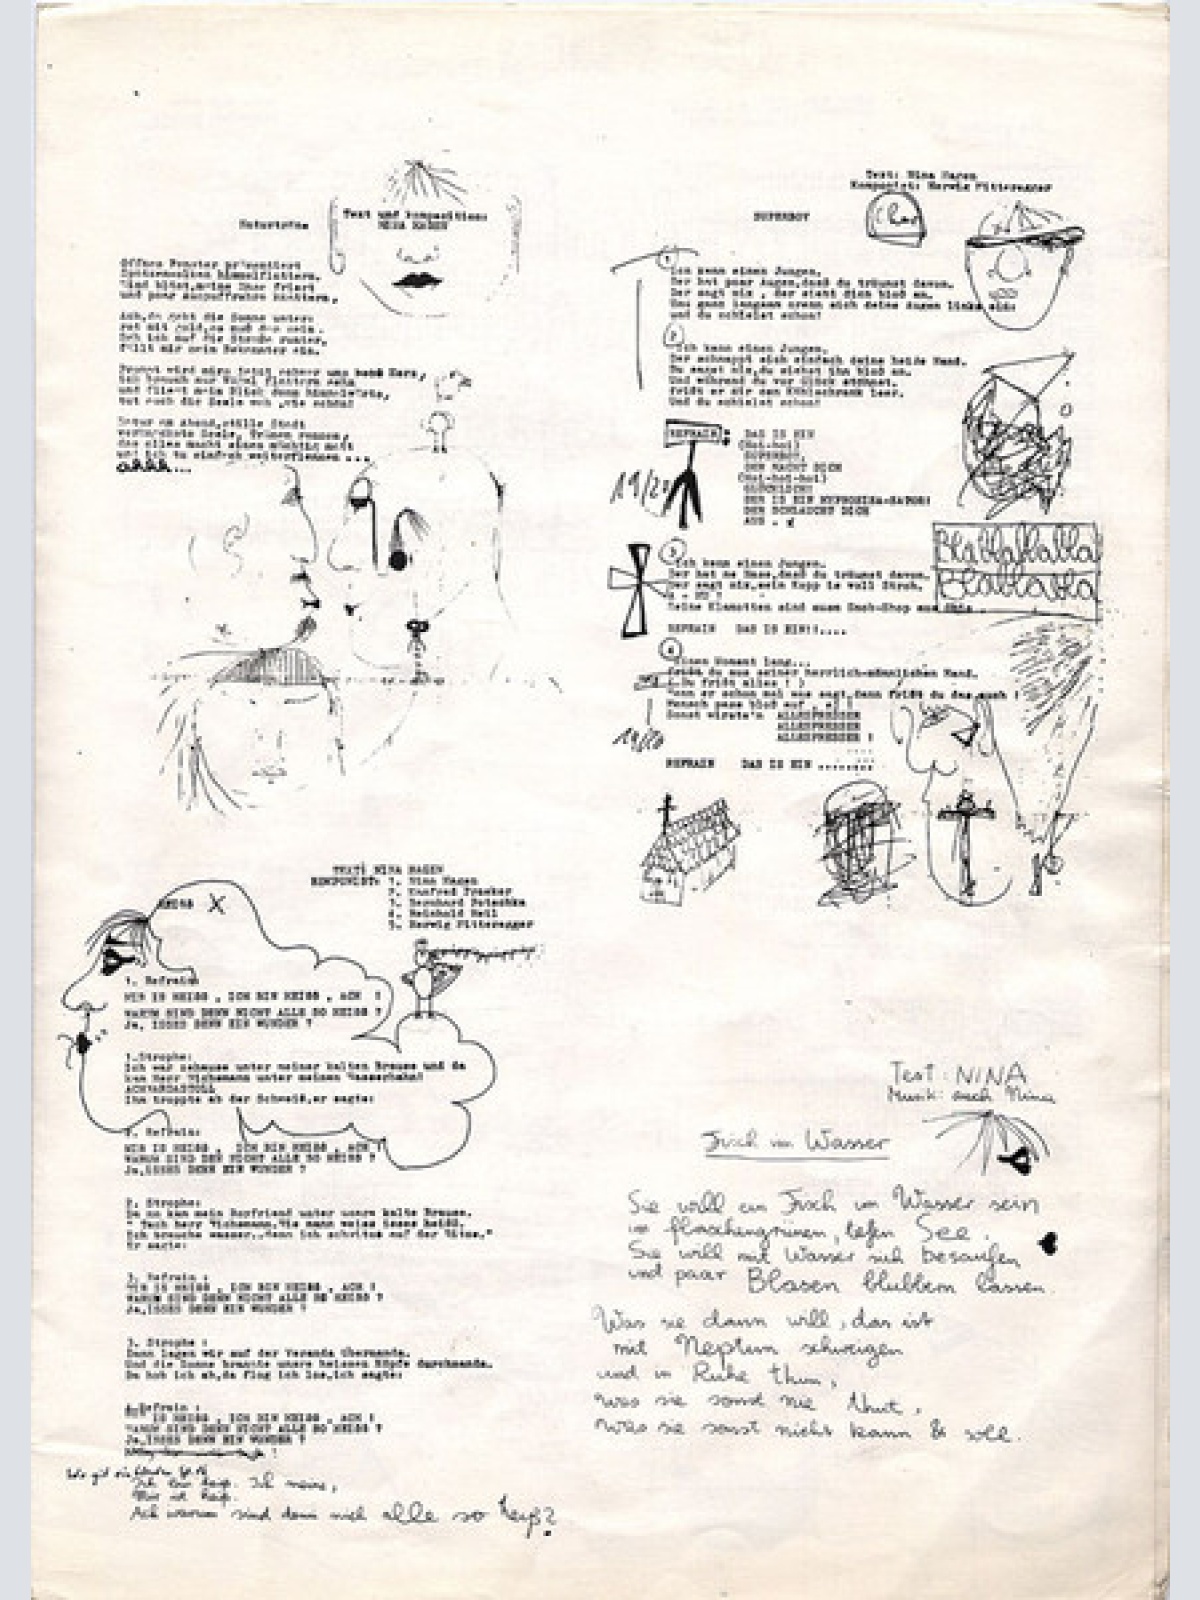 Naturträne
Text und Komposition:
NINA HAGEN
Offnes Fenster präsentiert
Spatzenwolken himmelflattern.
Wind bläst, meine Nase friert
und paar Auspuffrohre knattern,
Ach, da geht die Sonne unter:
rot mit gold, so muß das sein.
Seh ich auf die Straße runter,
fällt mir mein Bekannter ein.
Prompt wird mirs jetzt schwer ums Herz,
ich brauch nur Vögel flattern sehn
und fliegt mein Blick dann himmelwärts,
tut auch die Seele weh, wie schön!
Natur am Abend, stille Stadt
verknackste Seele, Tränen rennen,
das alles macht einen mächtig matt
und ich tu einfach weiterflennen ...
ahhh...
Text: Nina Hagen
Komponist: Herwig Mitteregger
SUPERBOY
1
Ich kenn einen Jungen.
Der hat paar Augen, daß du träumst davon.
Der sagt nix, der sieht dich bloß an.
Und ganz langsam drehn sich deine Augen links
und du schielst schon!
2
Ich kenn einen Jungen.
Der schnappt sich einfach deine beide Hand.
Du sagst nix, du siehst ihn bloß an.
Und während du vor Glück stöhnst,
frißt er dir den Kühlschrank leer.
Und du schielst schon!
REFRAIN:
DAS IS EIN
(Hoi-hoi)
SUPERBOY,
DER MACHT DICH
(Hoi-hoi-hoi)
GLÜCKLICH!
DER IS EIN
DER SCHLAUCHT DICH
AUS .
19/20
3
Ich kenn einen Jungen.
Der hat ne Nase, daß du träumst davon.
Der sagt nix, sein Kopp is voll Stroh.
Seine Klamotten sind ausm
REFRAIN DAS IS EIN!!....
Blablablabla
Blablabla
4
Einen Moment lang...
frißt du aus seiner herrlich-männlichen Hand.
( Du frißt alles ! )
Wenn er schon mal was sagt, dann frißt du das auch !
Mensch pass bloß auf
Sonst wirste'n ALLESFRESSER
ALLESFRESSER
ALLESFRESSER !
19/20
REFRAIN DAS IS EIN ........
TEXT: NINA HAGEN
KOMPONIST: 1. Nina Hagen
2. Manfred Praeker
3. Bernhard Potschka
4. Reinhold Heil
5. Herwig Mitteregger
HEISS X
1. Refrain
MIR IS HEISS , ICH BIN HEISS , ACH !
WARUM SIND DENN NICHT ALLE SO HEISS ?
Ja, ISSES DENN EIN WUNDER ?
1.Strophe:
Ich war zuhause unter meiner kalten Brause und da
kam Herr Wichsmann unter meinen Wasserhahn!
Ihm troppte ab der Schweiß, er sagte:
2. Refrain:
MIR IS HEISS , ICH BIN HEISS , ACH !
WARUM SIND DENN NICHT ALLE SO HEISS ?
Ja, ISSES DENN EIN WUNDER ?
2. Strophe:
Da nn kam mein Boyfriend unter unsre kalte Brause.
" Tach Herr Wichsmann,
Ich brauche wasser..denn ich schwitze auf der Glatze."
Er sagte:
3. Refrain :
MIR IS HEISS , ICH BIN HEISS , ACH !
WARUM SIND DENN NICHT ALLE SO HEISS ?
Ja, ISSES DENN EIN WUNDER ?
3. Strophe :
Dann lagen wir auf der Veranda übernanda.
Und die Sonne brannte unsre heissen Köpfe durchnanda.
Da hob ich ab, da flog ich los, ich sagte:
4. Refrain :
MIR IS HEISS , ICH BIN HEISS , ACH !
WARUM SIND DENN NICHT ALLE SO HEISS ?
Ja, ISSES DENN EIN WUNDER ?
Ich bin heiß. Ich meine,
Mir ist heiß.
Ach warum sind denn nich alle so heiß?
Text: NINA
Musik: auch Nina
Fisch im Wasser
Sie will ein Fisch im Wasser sein
im flaschengrünen, tiefen See.
Sie will mit Wasser sich besaufen
und paar Blasen blubbern lassen.
Was sie dann will, das ist
mit Neptun schweigen
und in Ruhe thun,
was sie sonst nie thut,
was sie sonst nicht kann & soll.